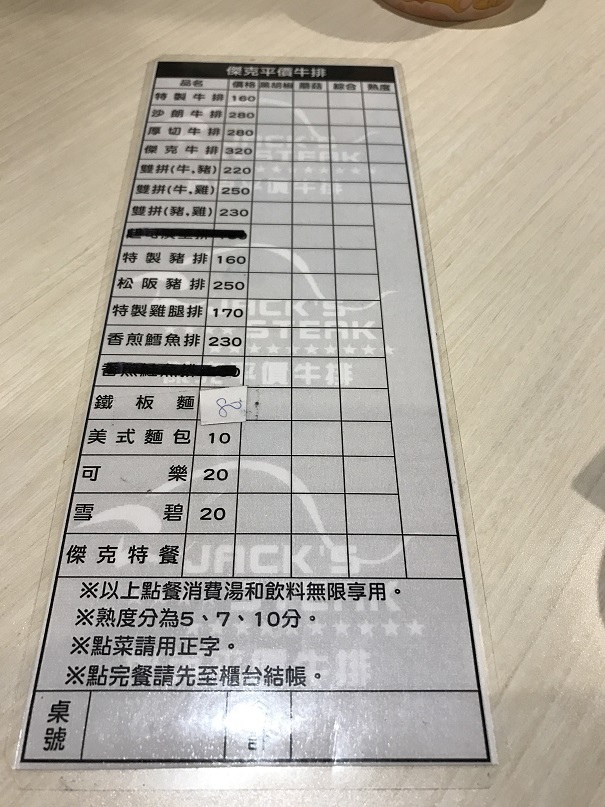 傑克平價牛排
品名 價格 黑胡椒 蘑菇 綜合 熟度
特製牛排 160
沙朗牛排 280
厚切牛排 280
傑克牛排 320
雙拼(牛,豬) 220
雙拼(牛,雞) 250
雙拼(豬,雞) 230
特製豬排 160
松阪豬排 250
特製雞腿排 170
香煎鱈魚排 230
鐵板麵
美式麵包 10
可樂 20
雪碧 20
傑克特餐
※以上點餐消費湯和飲料無限享用。
※熟度分為5、7、10分。
※點菜請用正字。
※點完餐請先至櫃台結帳。
桌號
JACK'S
STEAK
傑克平價牛排